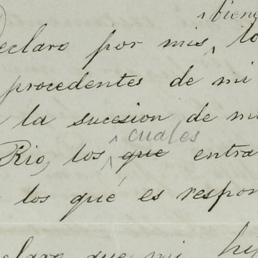 bienes
eclaro por mis, lo
procedentes de mi
la sucesion de m
cuales
Rio, los que entra
los qué es respon
claro que mi